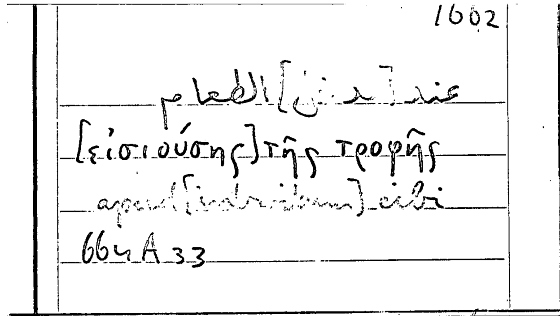 1602
عند [مدخل] الطعام
[εἰσιούσης] τῆς τροφῆς
apud [introitum] cibi
664 A 33